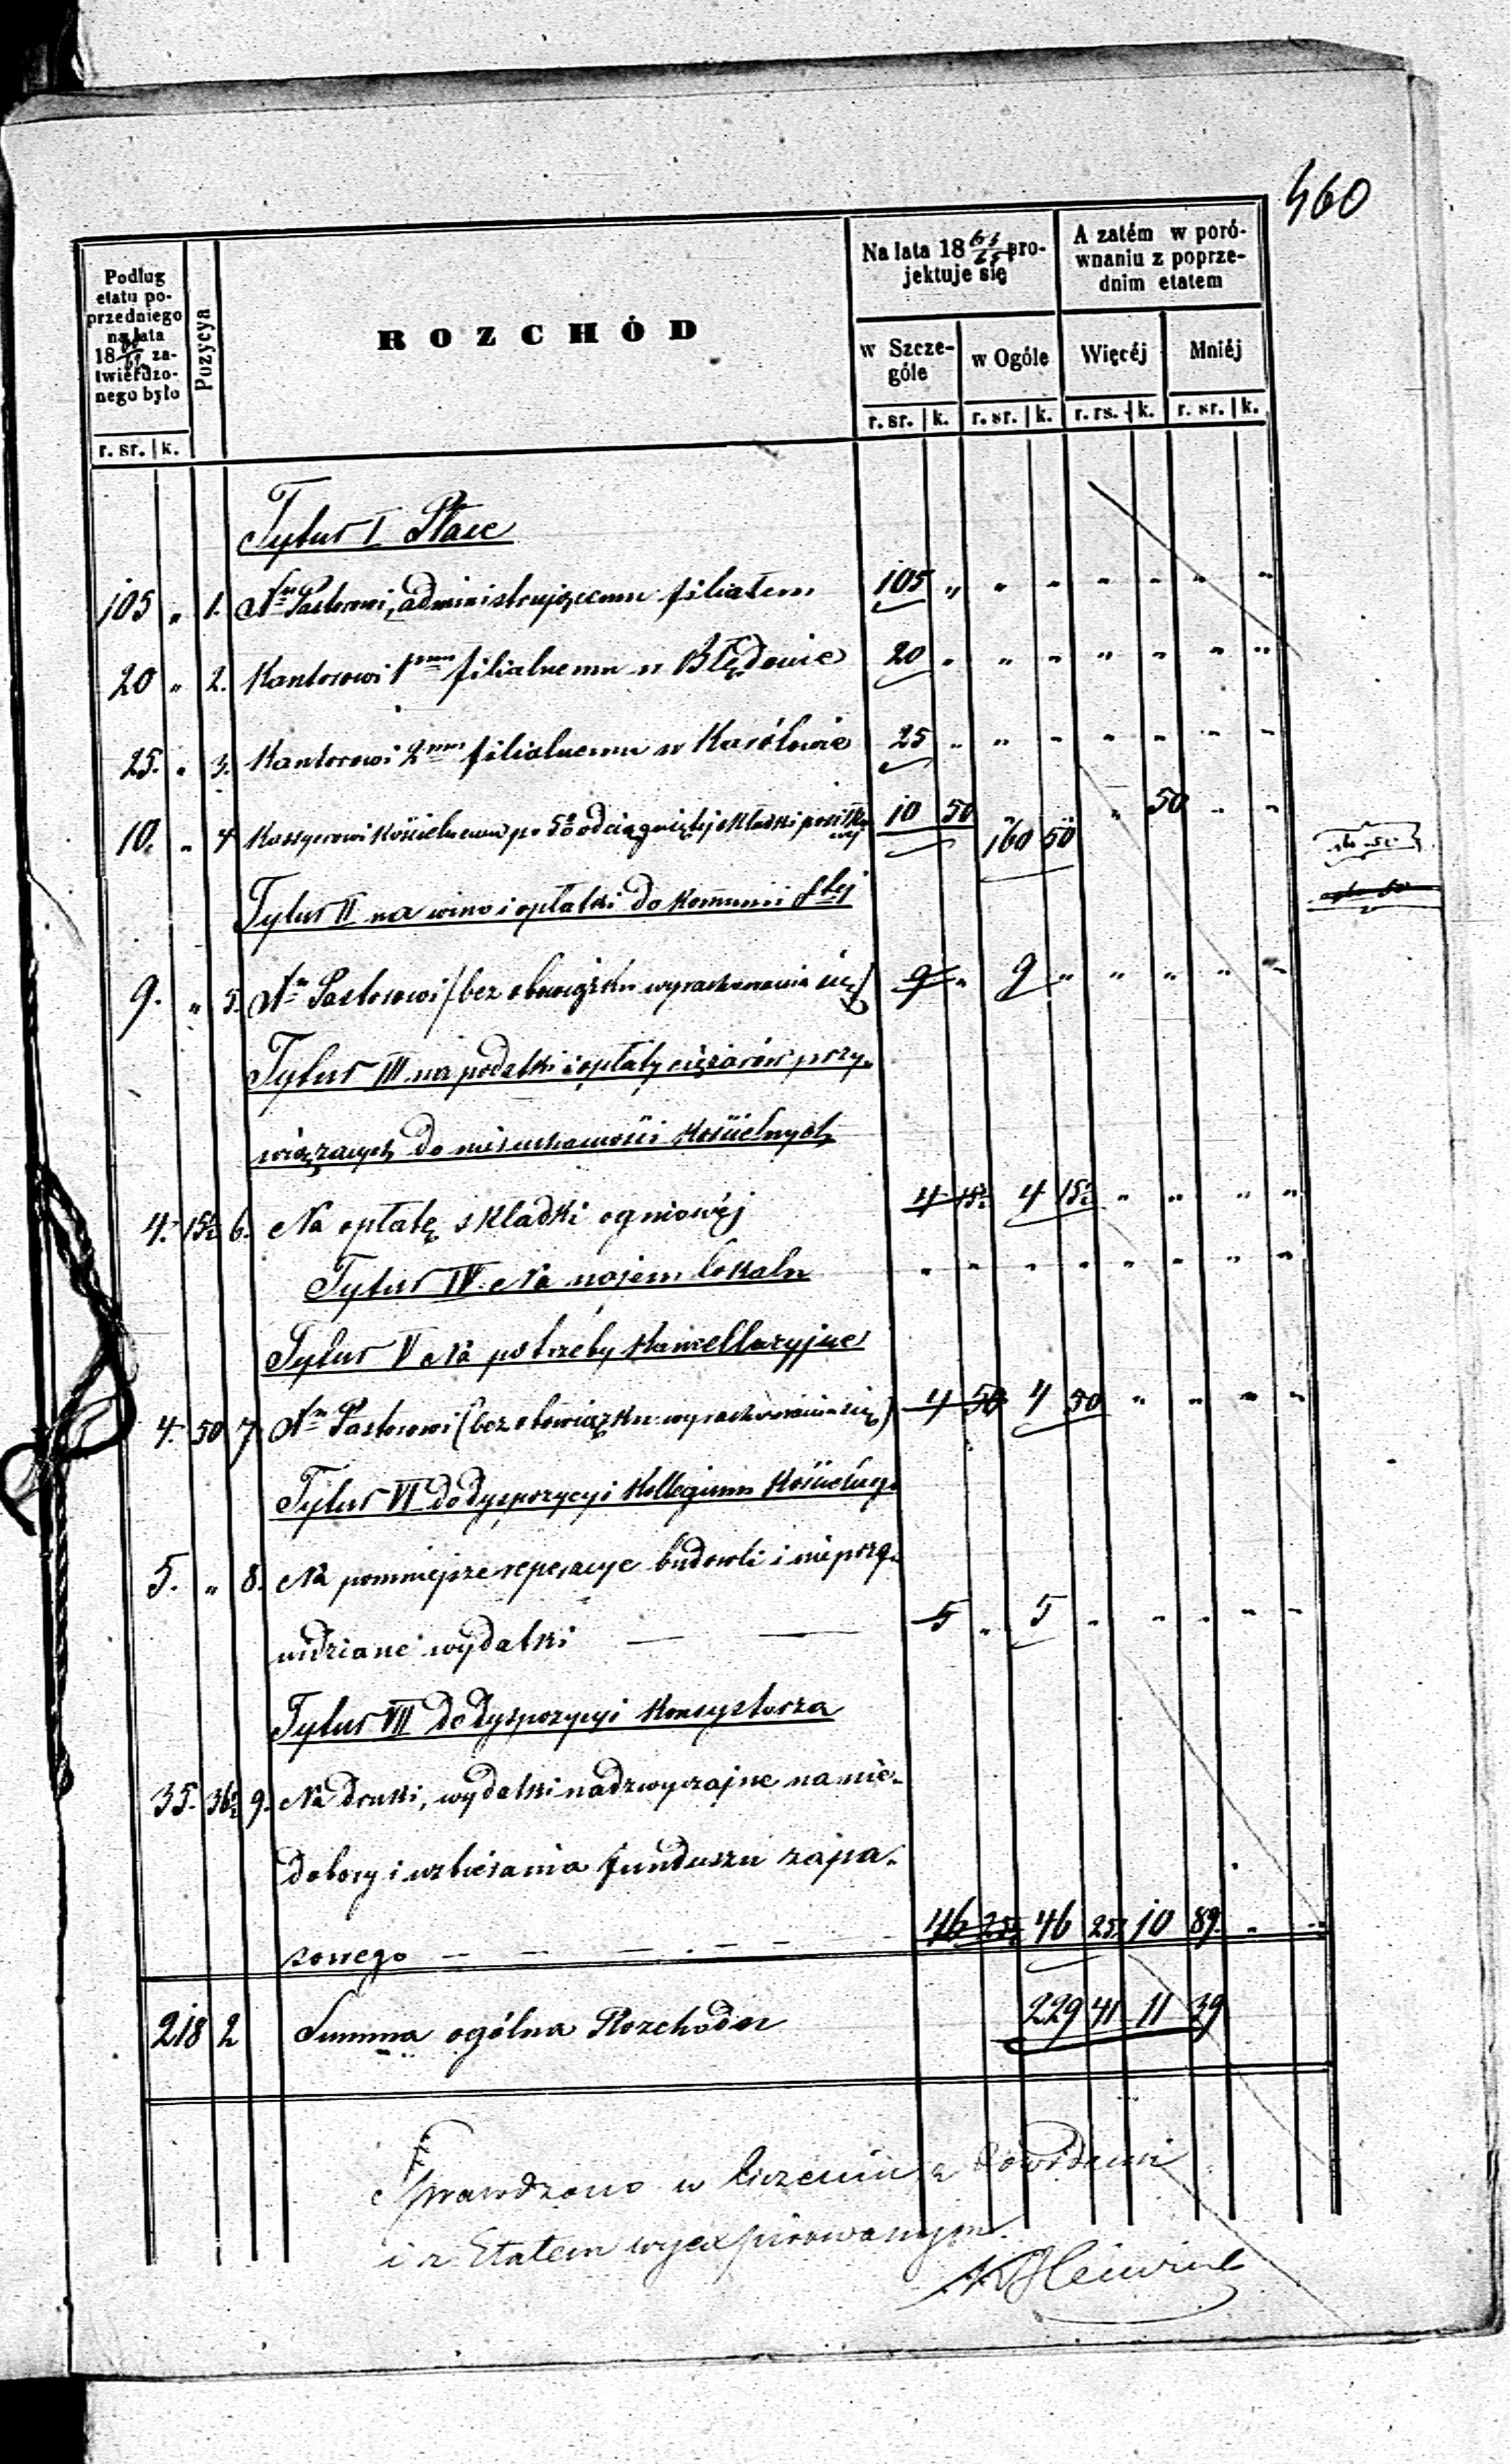 460
Podług etatu poprzedniego na lata 18 zatwierdzonego było
Pozycya
ROZCHÓD
Na lata 18 63/65 projektuje się
A zatém w porównaniu z poprzednim etatem
w Szczególe
w Ogóle
Więcéj
Mniéj
r. sr. k.
r. sr. k. r. sr. k. r. rs. k. r. sr. k.
Tytuł I Płace
105 „ 1. Pastorowi, administrującemu filiałem 105 „ „ „ „ „ „ „
20 „ 2. Kantorowi 1mu filialnemu w Błędowie 20 „ „ „ „ „ „ „
25. „ 3. Kantorowi 2mu filialnemu w Karólewie 25 „ „ „ „ „ „ „
10. „ 4 Kassyerowi Kościelnemu po 5% od ściągniętej składki 10 50 „ „ „ 50 „ „
160 50
Tytuł II na wino i opłatki do Komunii Stej
9. „ 5. Pastorowi (bez obowiązku wyrachowania się) 9 „ 9 „ „ „ „ „
Tytuł III na podatki i opłaty ciężarów przy-
wiązanych do nieruchomości Kościelnych
4. 15½ 6. Na opłatę składki ogniowéj 4 15½ 4 15½ „ „ „ „
Tytuł IV. Na najem lokalu „ „ „ „ „ „ „ „
Tytuł V Na potrzeby Kancellaryjne
4. 50 7 Pastorowi (bez obowiązku wyrachowania się) 4 50 4 50 „ „ „ „
Tytuł VI do dyspozycyi Kollegium Kościelnego
5. „ 8. Na pomniejsze reperacye budowli i nieprze-
widziane wydatki 5 „ 5 „ „ „ „ „
Tytuł VII do dyspozycyi Konsystorza
35. 36½ 9. Na druki, wydatki nadzwyczajne na nie-
dobory i uzbierania funduszu zapa-
sowego 46 25½ 46 25½ 10 89 „ „
218 2 Summa ogólna Rozchodu 229 41 11 39
Sprawdzono w liczeniu z dowodami
i z Etatem wyexpirowanym.